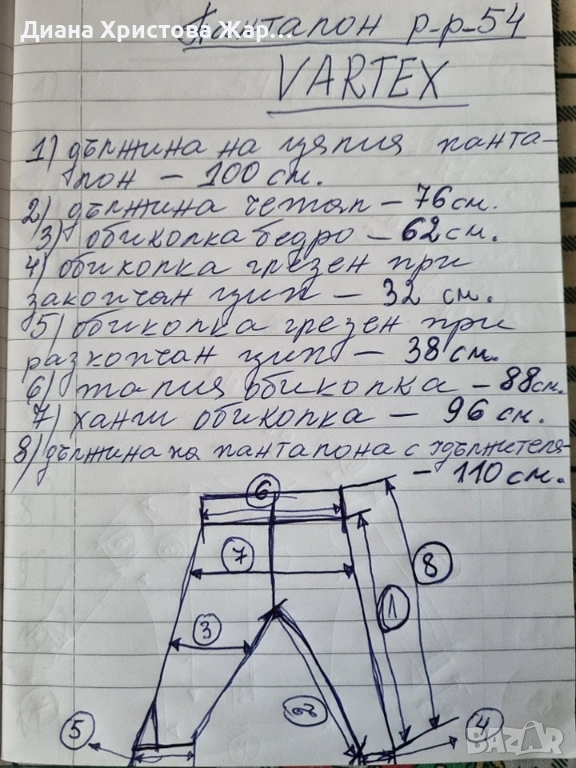 Диана Христова Жар...
Панталон р-р-54
VARTEX
1) дължина на целия панта-
лон - 100 см.
2) дължина чатал - 76 см.
3) обиколка бедро - 62 см.
4) обиколка глезен при
закопчан цип - 32 см.
5) обиколка глезен при
разкопчан цип - 38 см.
6) талия обиколка - 88 см.
7) ханш обиколка - 96 см.
8) дължина на панталона с удължителя
- 110 см.
6
7
8
1
3
2
5
4
BAZAR